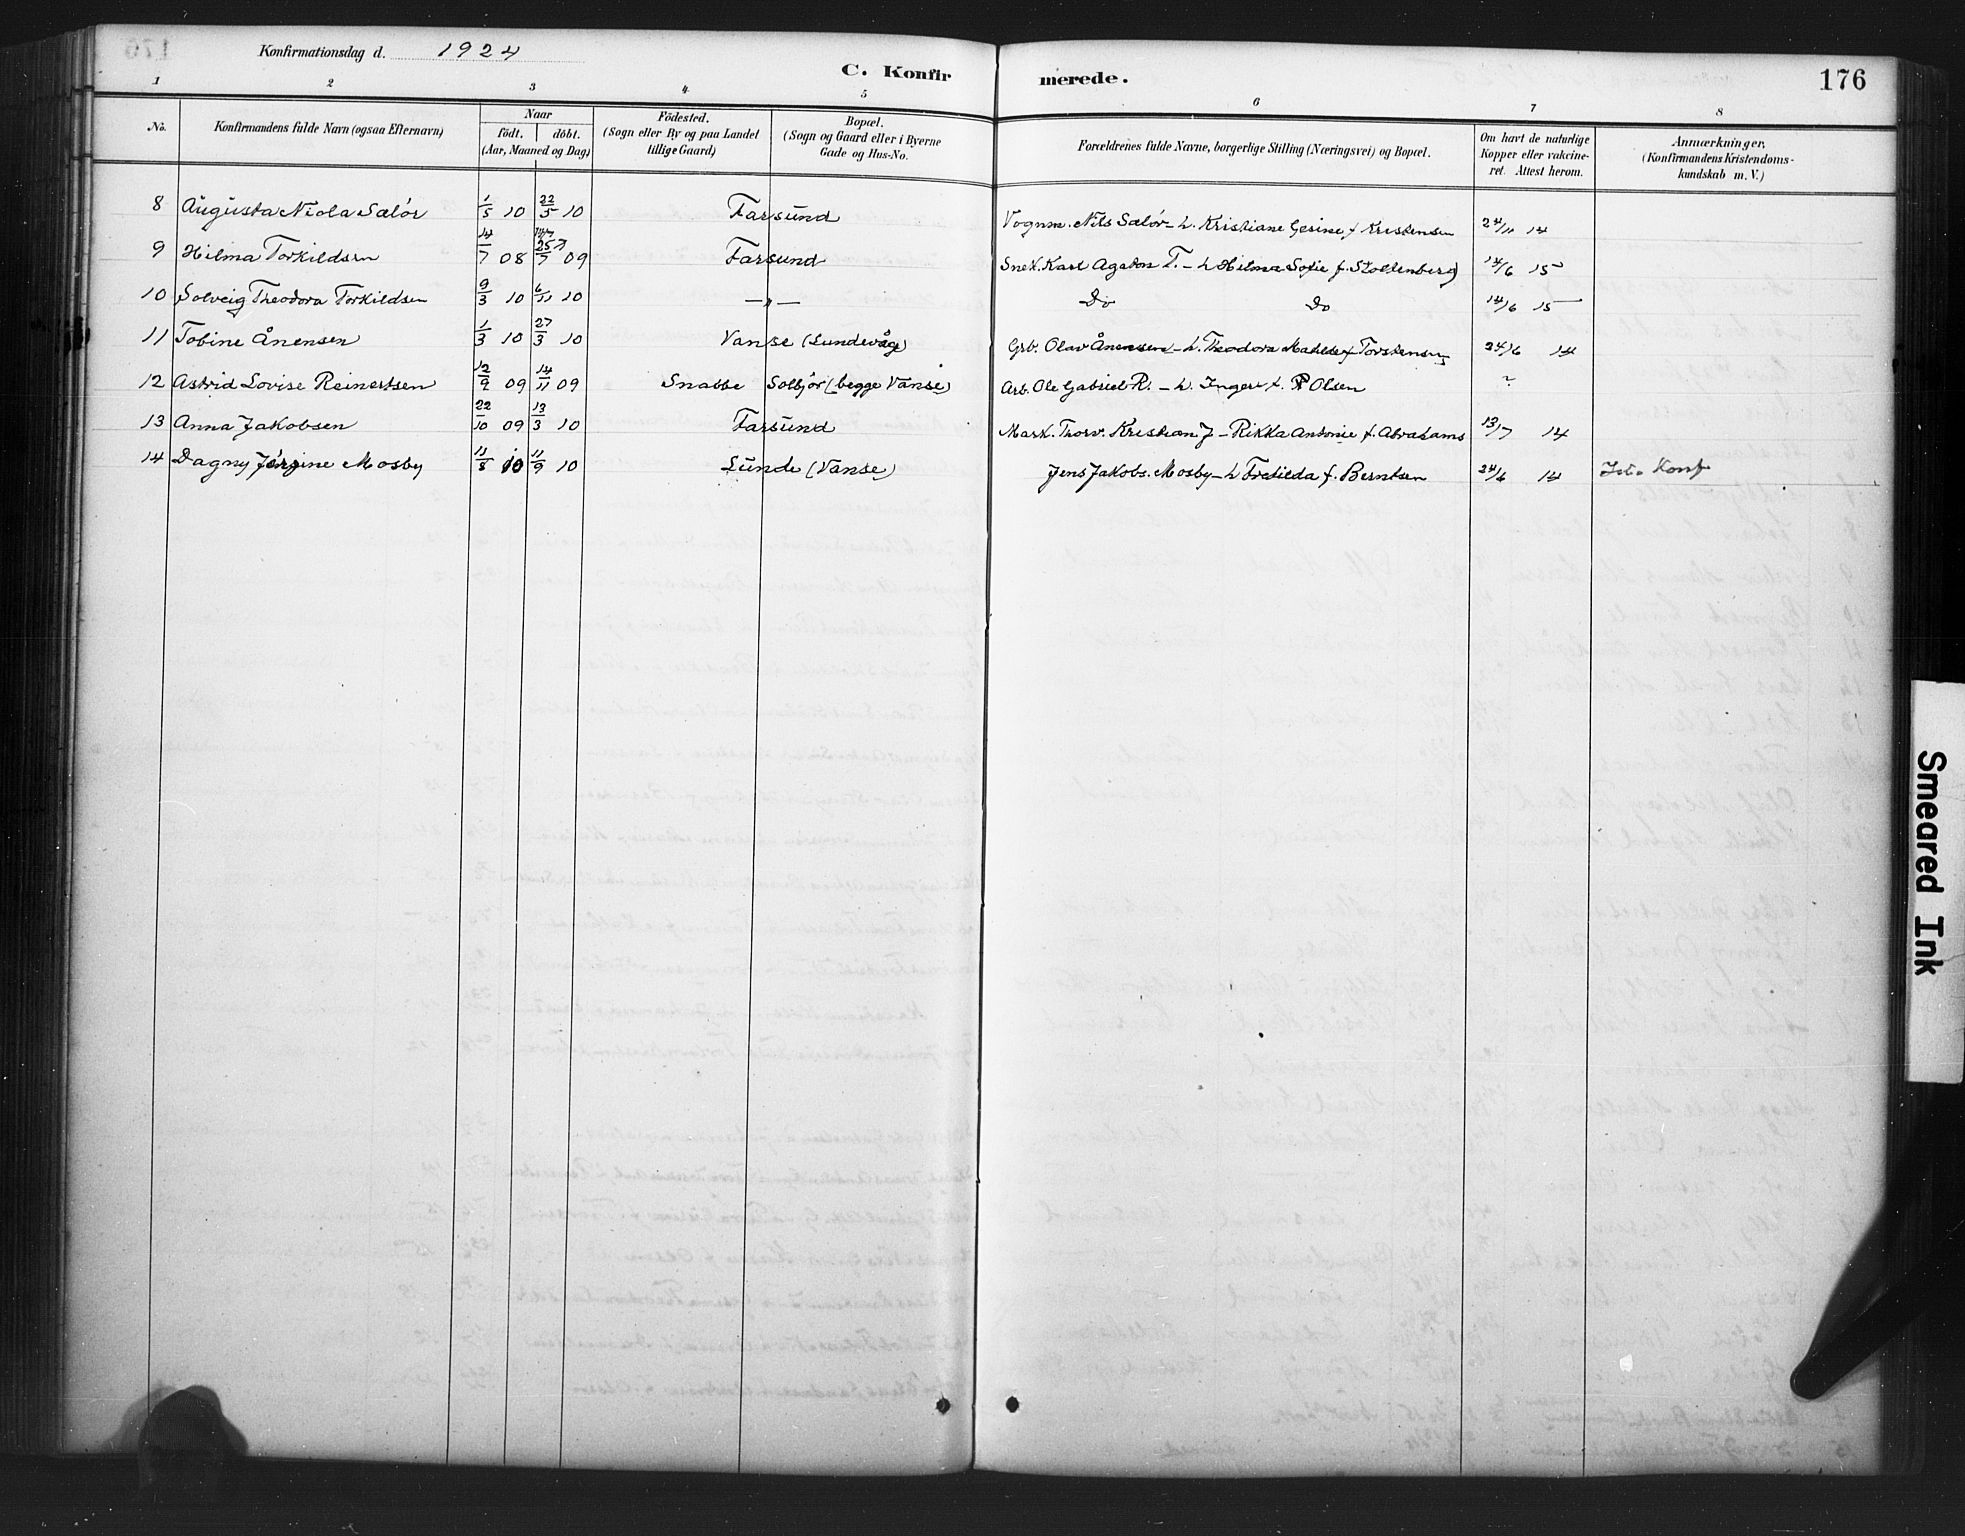 Konfirmationsdag d. 1924
C. Konfirmerede.
176
1 2 3 4 5 6 7 8
No. Konfirmandens fulde Navn (ogsaa Efternavn) Naar födt. döbt. (Aar, Maaned og Dag) Födested. (Sogn eller By og paa Landet tillige Gaard) Bopæl. (Sogn og Gaard eller i Byerne Gade og Hus-No. Forældrenes fulde Navne, borgerlige Stilling (Næringsvei) og Bopæl. Om havt de naturlige Kopper eller vakcineret. Attest herom. Anmærkninger, (Konfirmandens Kristendomskundskab m. V.)
8 Augusta Niola Sælör 1/5 10 22/5 10 Farsund Vognm. Nils Sælör - h. Kristiane Gesine f Kristensen 24/11 14
9 Hilma Torkildsen 14/7 08 25/7 09 Farsund Snek. Karl Agaton T. - h Hilma Sofie f. Stoltenberg) 14/6 15
10 Solveig Theodora Torkildsen 9/3 10 6/11 10 — " — Do Do 14/6 15
11 Tobine Ånensen 1/3 10 27/3 10 Vanse (Lundevåge) Grb. Olav Ånensen - h. Theodora f Torstensen 24/6 14
12 Astrid Lovise Reinertsen 12/9 09 14/11 09 Snasse Solbjör (begge Vanse) Arb. Ole Gabriel R. - h. Inger f. Olsen ~
13 Anna Jakobsen 22/10 09 13/3 10 Farsund Mask. Thorv. Kristian J - Rikka Antonie f. Abrahams 13/7 14
14 Dagny Jörgine Mosby 11/8 10 11/9 10 Lunde (Vanse) Jens Jakobs. Mosby - h Fredilda f. Berntsen 24/6 14 Konf
Smeared Ink